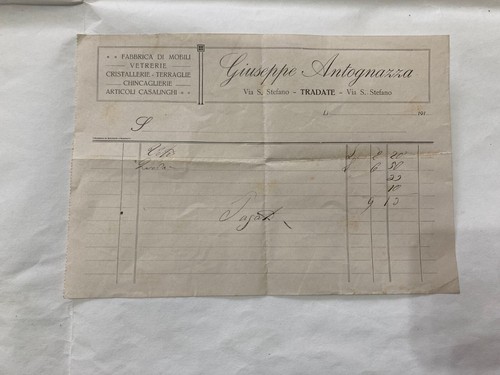 FABBRICA DI MOBILI
VETRERIE
CRISTALLERIE - TERRAGLIE
CHINCAGLIERIE
ARTICOLI CASALINGHI
Giuseppe Antognazza
Via S. Stefano - TRADATE - Via S. Stefano
li 191
S
2 20
6 50
22
10
9 13